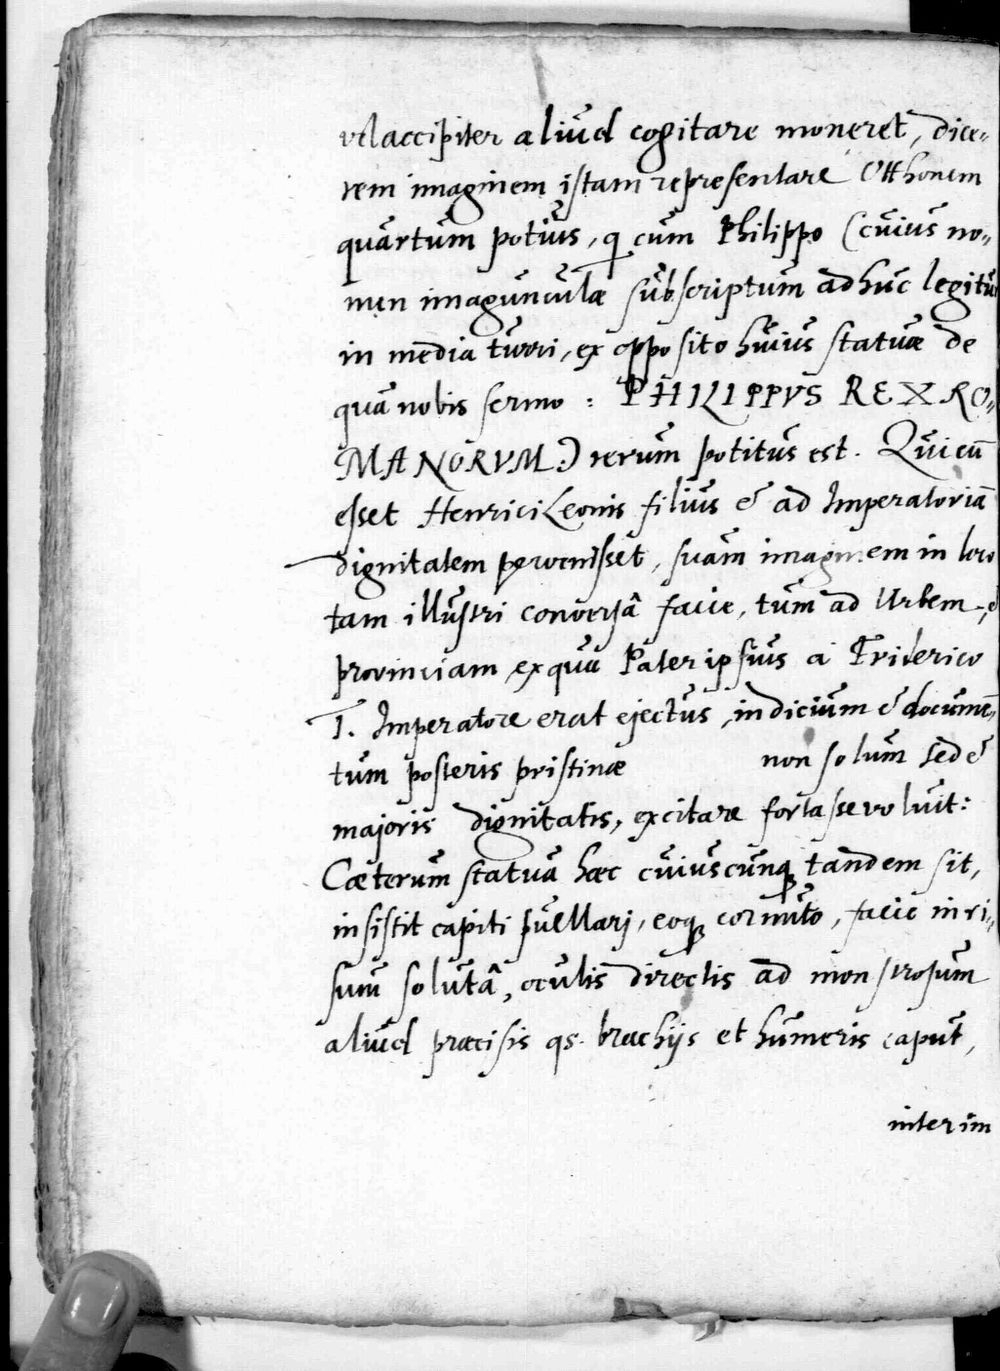 vel accipiter aliud cogitare moneret, dice-
rem imaginem istam repraesentare Otthonem
quartum potius, q cum Philippo (cuius no-
men imagunculae subscriptum adhuc legitur
in media turri, ex opposito huius statuae de
qua nobis sermo : PHILIPPVS REX RO-
MANORVM:) rerum potitus est. Qui cū
esset Henrici Leonis filius & ad Imperatoriā
dignitatem pervenisset, suam imaginem in loco
tam illustri conversâ facie, tum ad Urbem, &
provinciam ex qua Pater ipsius a Friderico
I. Imperatore erat ejectus, indicium & documē-
tum posteris pristinae non solum sed &
majoris dignitatis, excitare fortasse voluit:
Caeterum statua haec cuiuscunq tandem sit,
insistit capiti puellari, eoq cornuto, facie in ri-
sum solutâ, oculis directis ad monstrosum
aliud praecisis qs. brachijs et humeris caput,
interim